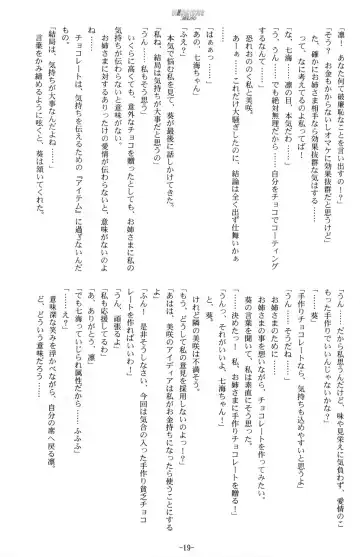 「凛！　あなた何で破廉恥なことを言い出すの！？」
「そう？　お金もかからないしオマケに効果抜群だと思うけど」
「た、確かにお姉さま相手なら効果抜群な気はする……
って、なに考えてるのよ私ってば！
「な、七海……凛の目、本気だわ……」
「う、うん……でも絶対無理だから……自分をチョコでコーティング
するなんて……」
恐れおののく私と美咲。
あーぁ……これだけ大騒ぎしたのに、結論は全く出ず仕舞いかぁ
……。
「はぁぁっ……」
「あの、七海ちゃん」
「ふえ？」
本気で悩む私を見て、葵が最後に話しかけてきた。
「私ね、結局は気持ちが大事だと思うの」
「うん……私もそう思う」
いくらに高くても、意外なチョコを贈ったとしても、お姉さまに私の
気持ちが伝わらないと意味がない。
お姉さまに対するありったけの愛情が伝わらないと、意味がないのよ
……。
チョコレートは、気持ちを伝えるための『アイテム』に過ぎないんだ
もの。
「結局は、気持ちが大事なんだよね……」
言葉をかみ締めるように呟くと、葵は頷いてくれた。
「うん。だから私思うんだけど、味や見栄えに気負わず、愛情のこ
もった手作りでいいんじゃないかな？」
「手作り？」
「うん。手作りチョコレートなら、気持ちも込めやすいと思うの」
「……うん、そうだね！」
お姉さまのために……
お姉さまの事を想いながら、チョコレートを作ってみよう。
葵の言葉を聞いて、私は素直にそう思った。
「……決めたっ！　私、お姉さまに手作りチョコレートを贈る！」
「うんっ、それがいいよ、七海ちゃん！」
「……葵」
けれど隣の美咲は不満そう。
「もう、どうして私の意見を採用しないのよっ！」
「あはは、美咲のアイディアは私がお金持ちになったら使うことにする
よ」
「ふん！　是非そうしなさい、今回は気合の入った手作り貧乏チョコ
レートを作ればいいわ！
「うん、頑張るよ」
「私も応援してるわ」
「あ、ありがとう、凛」
「でも七海っていじられ属性だから……ふふふ」
「……え？」
意味深な笑みを浮かべながら、自分の席へ戻る凛。
ど、どういう意味だろう……
-19-